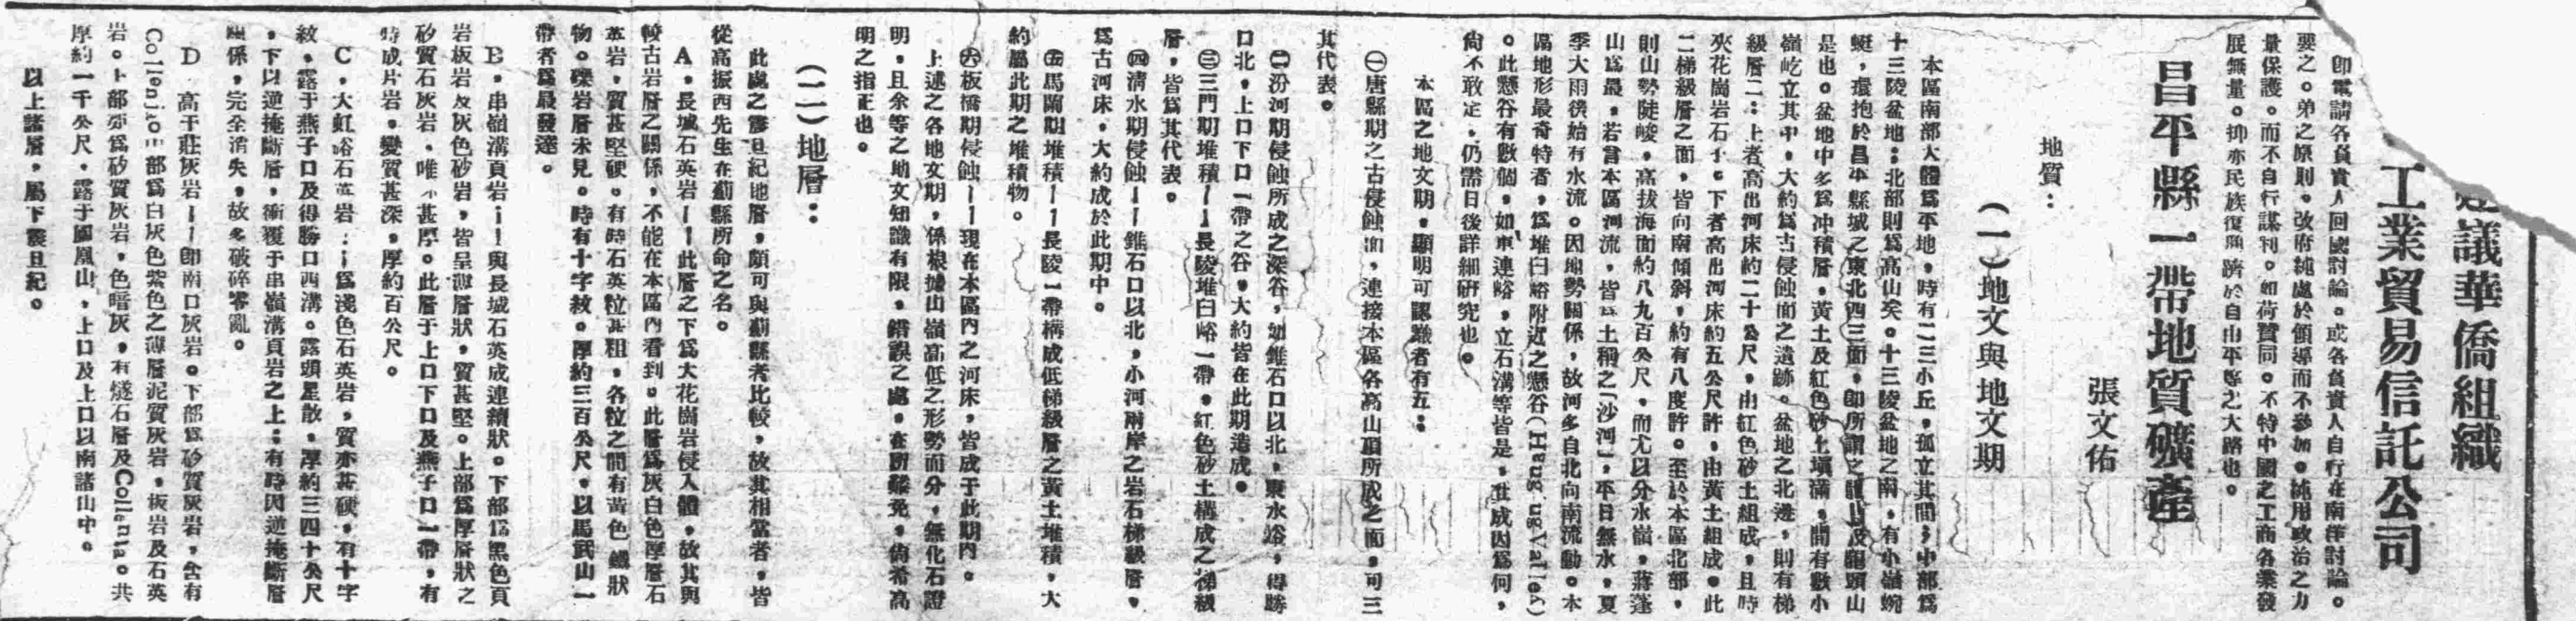 建議華僑組織
工業貿易信託公司
卽電請各負責人回國討論。或各負責人自行在南洋討論。
要之。弟之原則。政府純處於領導而不參加。純用政治之力
量保護。而不自行謀利。如荷贊同。不特中國之工商各業發
展無量。抑亦民族復興躋於自由平等之大路也。
昌平縣一帶地質礦產
張文佑
地質：
（一）地文與地文期
本區南部大體爲平地，時有二三小丘，孤立其間；中部爲
十三陵盆地；北部則爲高山矣。十三陵盆地之南，有小嶺蜿
蜒，環抱於昌平縣城之東北西三面，卽所謂之龍山及龍頭山
是也。盆地中多爲冲積層，黃土及紅色砂土填滿，間有數小
嶺屹立其中，大約爲古侵蝕面之遺跡。盆地之北邊，則有梯
級層二：上者高出河床約二十公尺，由紅色砂土組成，且時
夾花崗岩石子。下者高出河床約五公尺許，由黃土組成。此
二梯級層之面，皆向南傾斜，約有八度許。至於本區北部，
則山勢陡峻，高拔海面約八九百公尺，而尤以分水嶺，蔣蓬
山爲最，若言本區河流，皆爲土稱之「沙河」，平日無水，夏
季大雨後始有水流。因地勢關係，故河多自北向南流動。本
區地形最奇特者，爲堆臼峪附近之懸谷(Hanging Valley)
。此懸谷有數個，如車連峪，立石溝等皆是，其成因爲何，
尙不敢定，仍需日後詳細研究也。
本區之地文期，顯明可認識者有五：
㊀唐縣期之古侵蝕面，連接本區各高山頂所成之面，可三
其代表。
㊁汾河期侵蝕所成之深谷，如錐石口以北，東水峪，得勝
口北，上口下口一帶之谷，大約皆在此期造成。
㊂三門期堆積——長陵堆臼峪一帶，紅色砂土構成之梯級
層，皆爲其代表。
㊃淸水期侵蝕——錐石口以北，小河兩岸之岩石梯級層，
爲古河床，大約成於此期中。
㊄馬蘭期堆積——長陵一帶構成低梯級層之黃土堆積，大
約屬此期之堆積物。
㊅板橋期侵蝕——現在本區內之河床，皆成于此期內。
上述之各地文期，係根據山嶺高低之形勢而分，無化石證
明，且余等之地文知識有限，錯誤之處，在所難免，尙希高
明之指正也。
（二）地層：
此處之震旦紀地層，頗可與薊縣者比較，故其相當者，皆
從高振西先生在薊縣所命之名。
A，長城石英岩——此層之下爲大花崗岩侵入體，故其與
較古岩層之關係，不能在本區內看到。此層爲灰白色厚層石
英岩，質甚堅硬。有時石英粒甚粗，各粒之間有黃色鐵狀
物。礫岩層未見。時有十字紋。厚約三百公尺，以馬武山一
帶者爲最發達。
B，串嶺溝頁岩——與長城石英成連續狀。下部爲黑色頁
岩板岩及灰色砂岩，皆呈薄層狀，質甚堅。上部爲厚層狀之
砂質石灰岩，唯不甚厚。此層于上口下口及燕子口一帶，有
時成片岩。變質甚深，厚約百公尺。
C，大紅峪石英岩：—爲淺色石英岩，質亦甚硬，有十字
紋，露于燕子口及得勝口西溝。露頭星散，厚約三四十公尺
，下以逆掩斷層，衝覆于串嶺溝頁岩之上；有時因逆掩斷層
關係，完全消失，故多破碎零亂。
D 高于莊灰岩——卽南口灰岩。下部爲矽質灰岩，含有
Collenia。中部爲白灰色紫色之薄層泥質灰岩，板岩及石英
岩。上部爲矽質灰岩，色暗灰，有燧石層及Collenia。共
厚約一千公尺，露于鳳凰山，上口及上口以南諸山中。
以上諸層，屬下震旦紀。